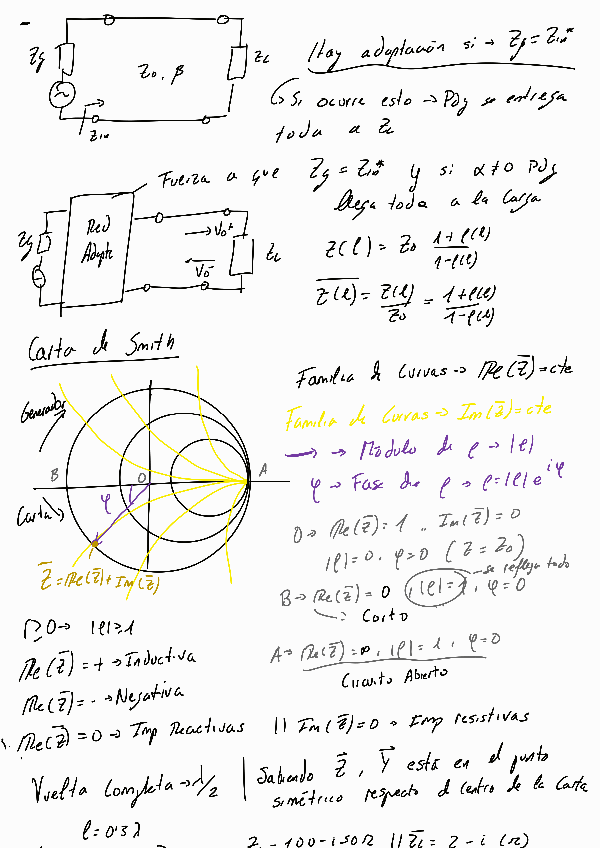 Zg
Z0, β
ZL
Zin
Hay adaptación si → Zg = Zin*
↳ Si ocurre esto → Pdg se entrega
toda a ZL
Fuerza a que Zg = Zin* y si α≠0 Pdg
llega toda a la carga
Zg
Red
Adapt
→ V0+
V0-
ZL
Z(l) = Z0 (1+ρ(l))/(1-ρ(l))
Z̅(l) = Z(l)/Z0 = (1+ρ(l))/(1-ρ(l))
Carta de Smith
Generador
Carta
B
O
A
φ
Z̅ = Re(Z̅) + Im(Z̅)
Familia de Curvas → Re(Z̅) = cte
Familia de Curvas → Im(Z̅) = cte
→ → Módulo de ρ → |ρ|
φ → Fase de ρ → ρ = |ρ| e^iφ
O → Re(Z̅) = 1 , Im(Z̅) = 0
|ρ| = 0 , φ = 0 (Z = Z0)
se refleja todo
B → Re(Z̅) = 0 , |ρ| = 1 , φ = 0
→ Corto
A → Re(Z̅) = ∞ , |ρ| = 1 , φ = 0
Circuito Abierto
|ρ| ≥ 1
Re(Z̅) = + → Inductiva
Re(Z̅) = - → Negativa
Re(Z̅) = 0 → Imp Reactivas || Im(Z̅) = 0 → Imp resistivas
Vuelta Completa → λ/2
Sabiendo Z̅, Y̅ está en el punto
simétrico respecto el centro de la Carta
l = 0'3 λ
ZL = 100 - i50 Ω || Z̅L = 2 - i (Ω)